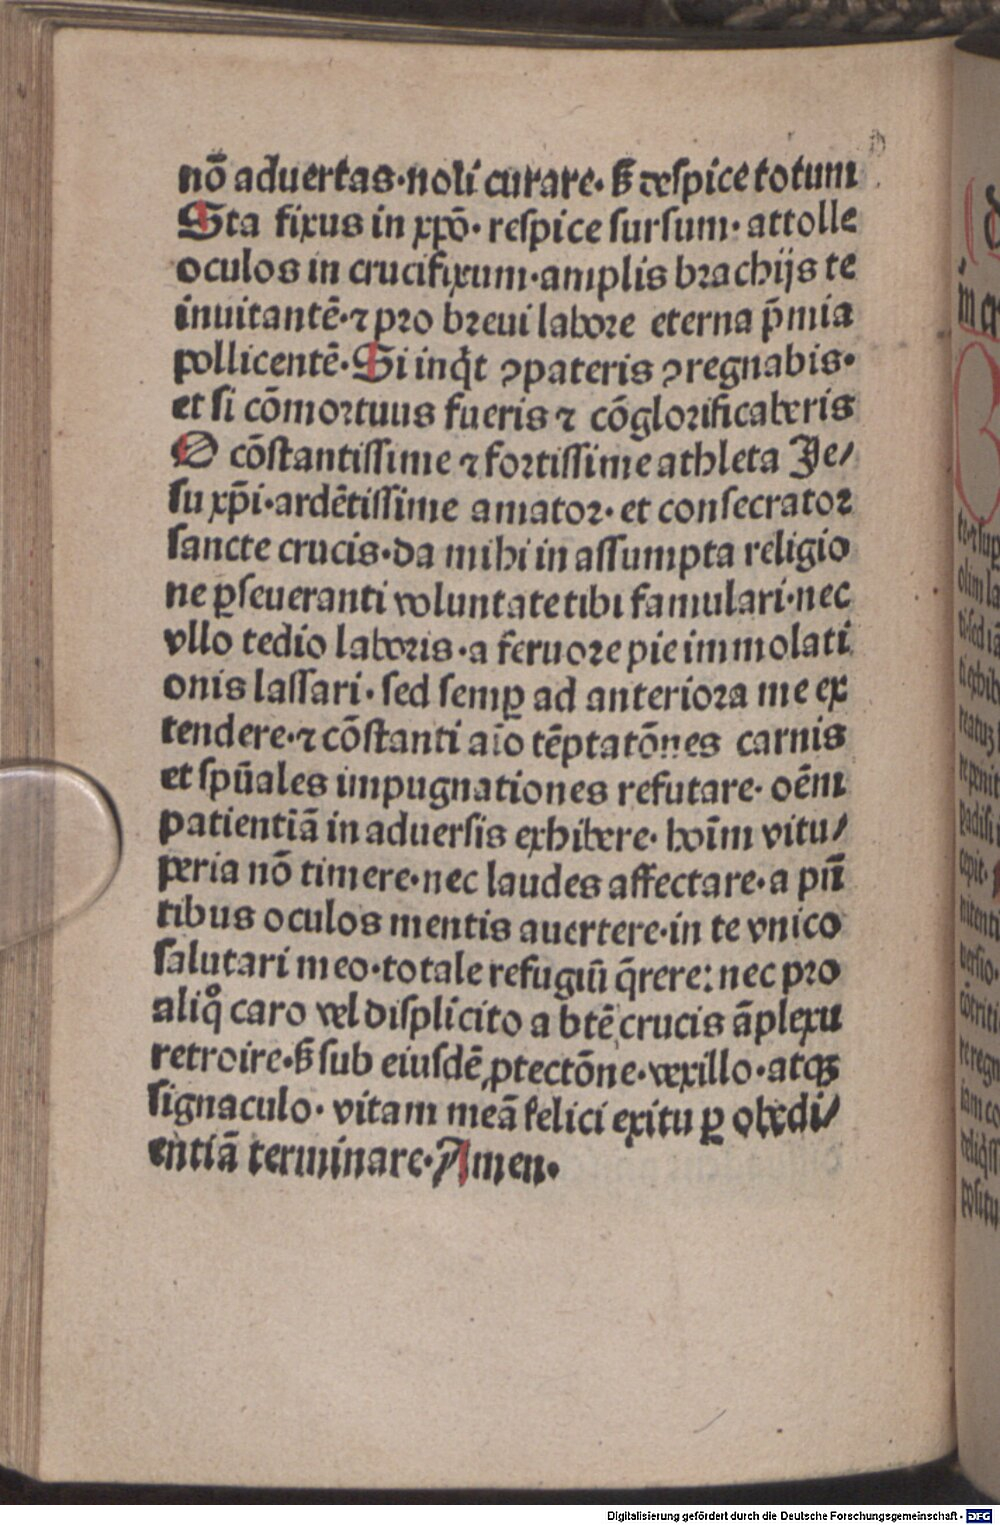 nō aduertas·noli curare· ẜ despice totum
Sta fixus in xp̄o· respice sursum· attolle
oculos in crucifixum·amplis brachijs te
inuitantē·⁊ pro breui labore eterna p̄mia
pollicentē·Si inq̇t ꝯpateris ꝯregnabis·
et si cōmortuus fueris ⁊ cōglorificaberis
O cōstantissime ⁊ fortissime athleta Je/
su xp̄i·ardētissime amator· et consecrator
sancte crucis·da mihi in assumpta religio
ne ꝑseueranti voluntate tibi famulari·nec
vllo tedio laboris·a feruore pie immolati
onis lassari· sed semꝑ ad anteriora me ex
tendere·⁊ cōstanti aīo tēptatōnes carnis
et spūales impugnationes refutare· oēm
patientiā in aduersis exhibere· hoīm vitu/
peria nō timere·nec laudes affectare·a pn̄
tibus oculos mentis auertere·in te vnico
salutari meo·totale refugiū q̄rere: nec pro
aliq̊ caro vel displicito a btē crucis āplexu
retroire·ẜ sub eiusdē ꝓtectōne·vexillo·atqꝫ
signaculo· vitam meā felici exitu ꝑ obedi/
entiā terminare·Amen·
Digitalisierung gefördert durch die Deutsche Forschungsgemeinschaft - DFG